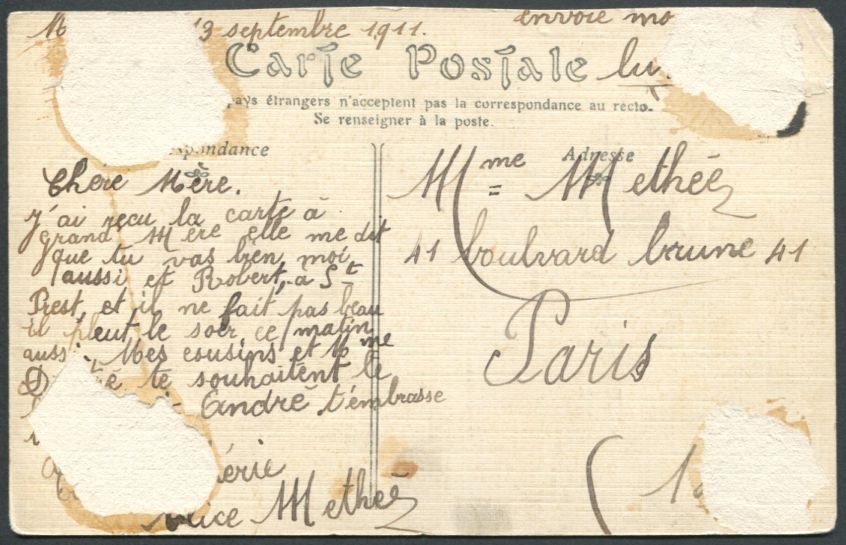 13 septembre 1911.
envoie mo
Carte Postale
lu
pays étrangers n'acceptent pas la correspondance au recto.
Se renseigner à la poste.
pondance
Adresse
Chère Mère.
j'ai reçu la carte à
grand Mère elle me dit
que tu vas bien moi
aussi et Robert, à St
Prest et il ne fait pas beau
il pleut le soir ce matin
aussi. Mes cousins et Mme
te souhaitent le
André t'embrasse
érie
Methée
Mme Methée
41 boulvard brune 41
Paris